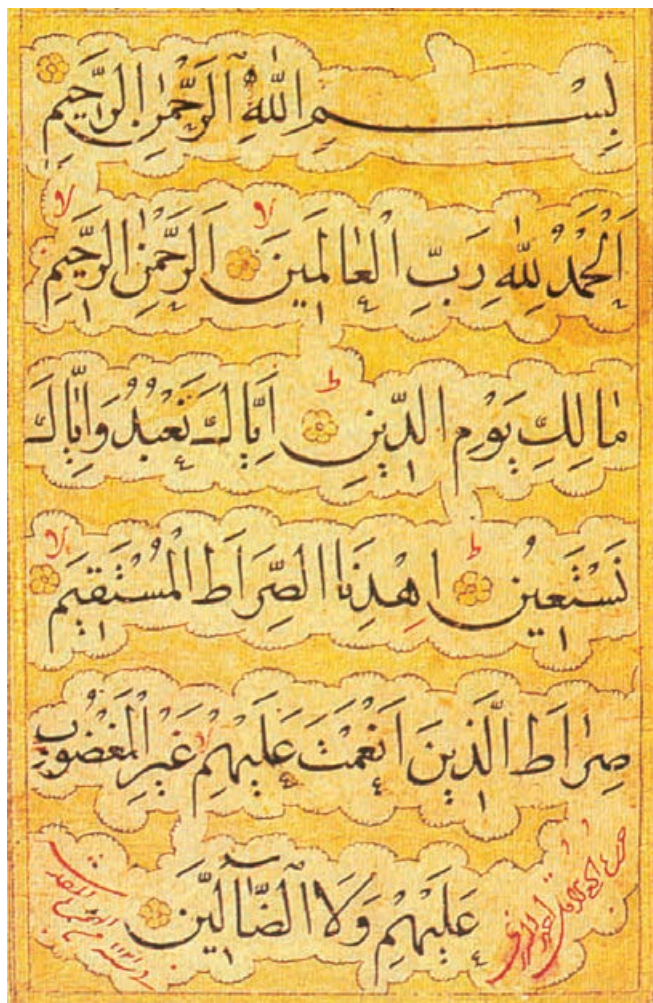 بِسْمِ اللّٰهِ الرَّحْمٰنِ الرَّحِيمِ
اَلْحَمْدُ لِلّٰهِ رَبِّ الْعٰالَمِينَ اَلرَّحْمٰنِ الرَّحِيمِ
مٰالِكِ يَوْمِ الدِّينِ اِيّٰاكَ نَعْبُدُ وَاِيّٰاكَ
نَسْتَعِينُ اِهْدِنَا الصِّرَاطَ الْمُسْتَقِيمَ
صِرٰاطَ الَّذِينَ اَنْعَمْتَ عَلَيْهِمْ غَيْرِ الْمَغْضُوبِ
عَلَيْهِمْ وَلَا الضَّآلِّينَ